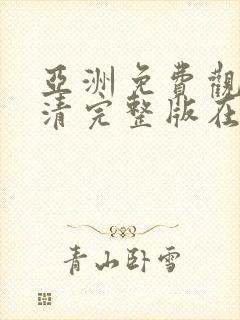 亞洲免費觀
清完整版在
青山臥雪